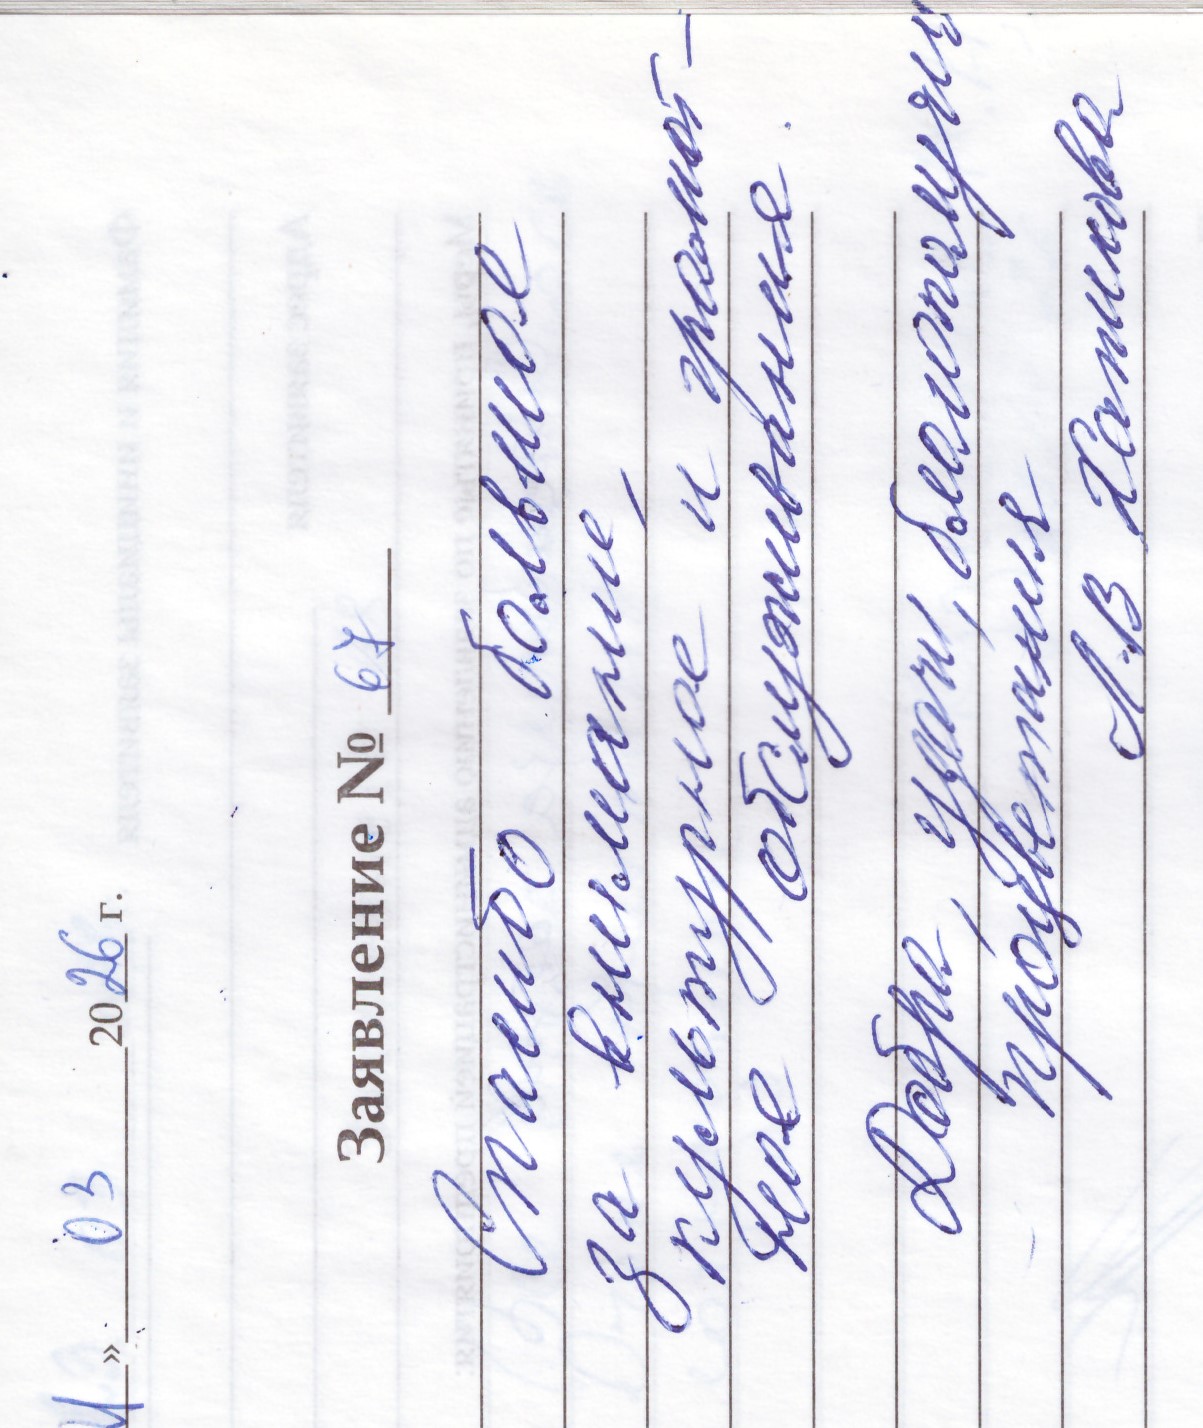 » 03 2026 г.
Заявление № 67
Спасибо большое
за внимание,
культурное и грамот-
ное обслуживания.
Добра, удачи, благополучия
процветания
Л.В